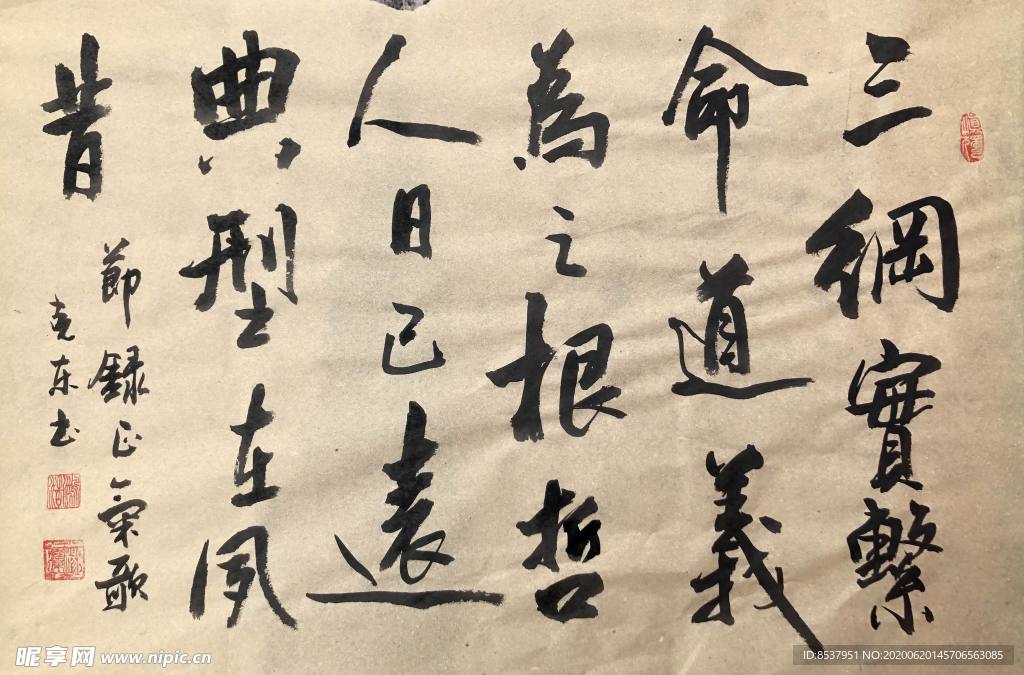 三綱實繫
命道義
為之根哲
人日已遠
典型在夙
昔
節録正氣歌
克东书
昵享网 www.nipic.cn
ID:8537951 NO:20200620145706563085